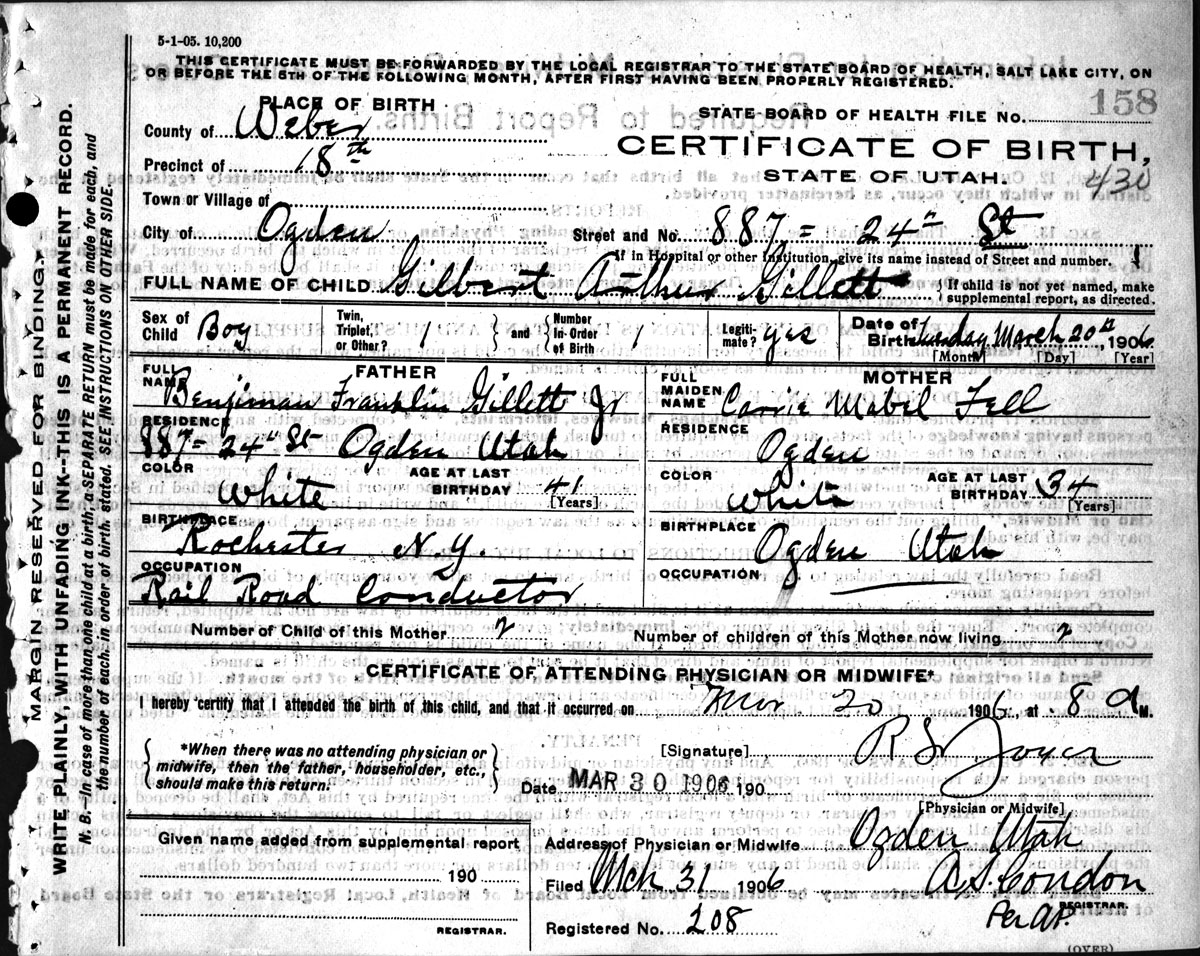 5-1-05. 10,200
THIS CERTIFICATE MUST BE FORWARDED BY THE LOCAL REGISTRAR TO THE STATE BOARD OF HEALTH, SALT LAKE CITY, ON
OR BEFORE THE 5TH OF THE FOLLOWING MONTH, AFTER FIRST HAVING BEEN PROPERLY REGISTERED.
PLACE OF BIRTH
STATE BOARD OF HEALTH FILE NO. 158
County of Weber
CERTIFICATE OF BIRTH,
Precinct of 18th
STATE OF UTAH. 430
Town or Village of
City of Ogden Street and No. 887 = 24th St
If in Hospital or other Institution, give its name instead of Street and number.
FULL NAME OF CHILD Gilbert Arthur Gillett
If child is not yet named, make supplemental report, as directed.
Sex of Child Boy Twin, Triplet, or Other? 1 and Number In Order of Birth 1 Legiti- mate? yes Date of Birth Tuesday March 20th, 1906
[Month] [Day] [Year]
FATHER MOTHER
FULL NAME Benjiman Franklin Gillett Jr FULL MAIDEN NAME Carrie Mabel Fell
RESIDENCE 887 = 24th St Ogden Utah RESIDENCE Ogden
COLOR White AGE AT LAST BIRTHDAY 41 [Years] COLOR White AGE AT LAST BIRTHDAY 34 [Years]
BIRTHPLACE Rochester N.Y. BIRTHPLACE Ogden Utah
OCCUPATION Rail Road Conductor OCCUPATION
Number of Child of this Mother 2 Number of children of this Mother now living 2
CERTIFICATE OF ATTENDING PHYSICIAN OR MIDWIFE*
I hereby certify that I attended the birth of this child, and that it occurred on Mar 20 1906, at 8 a M.
*When there was no attending physician or midwife, then the father, householder, etc., should make this return.
[Signature] R S Joyce
Date MAR 30 1906 190
[Physician or Midwife]
Given name added from supplemental report
Address of Physician or Midwife Ogden Utah
190
Filed Mch 31 1906 A.S. Condon
REGISTRAR.
Per AP.
REGISTRAR.
Registered No. 208
(OVER)
MARGIN RESERVED FOR BINDING.
WRITE PLAINLY, WITH UNFADING INK--THIS IS A PERMANENT RECORD.
N. B.—In case of more than one child at a birth, a SEPARATE RETURN must be made for each, and
the number of each, in order of birth, stated. SEE INSTRUCTIONS ON OTHER SIDE.